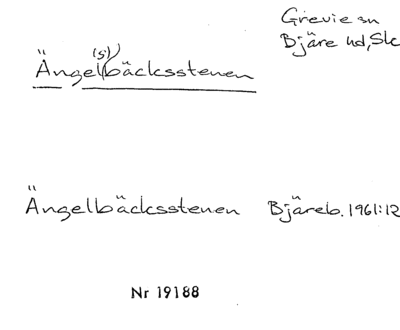 Grevie sn
Bjäre hd, Sk
(s)
Ängelbäcksstenen
Ängelbäcksstenen Bjäreb. 1961:12
Nr 19188